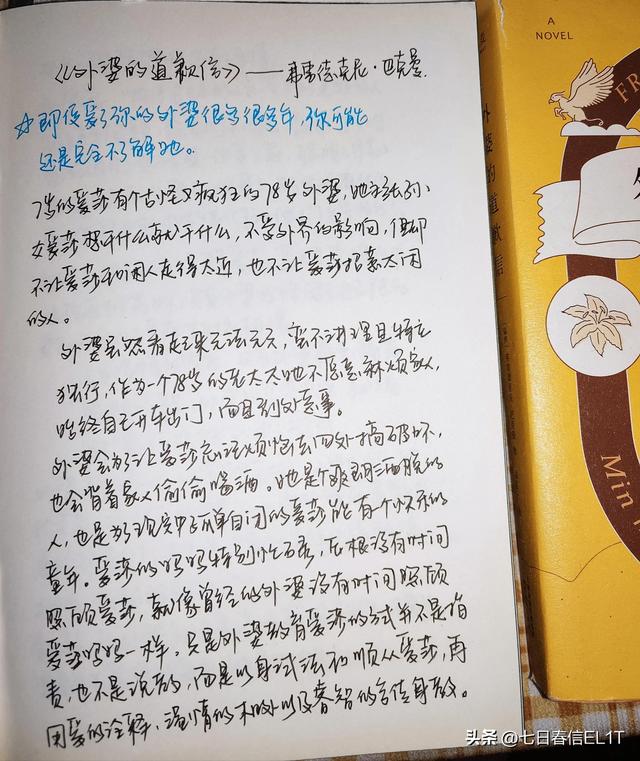 《外婆的道歉信》——弗雷德克尼·巴克曼.
☆即使爱了你的外婆很多很多年,你可能
还是完全不了解她。
7岁的爱莎有个古怪又疯狂的78岁外婆,她主张孙
女爱莎想干什么就干什么,不受外界的影响,但却
不让爱莎和闲人走得太近,也不让爱莎招惹太闲
的人。
外婆虽然看起来无法无天,蛮不讲理且特立
独行,作为一个78岁的老太太她不愿意麻烦家人,
始终自己开车出门,而且到处惹事。
外婆会为了让爱莎忘记烦恼去四处搞破坏,
也会背着家人偷偷喝酒。她是个爽朗洒脱的
人,也是为现实中孤单自闭的爱莎能有个快乐的
童年。爱莎的妈妈特别忙碌,压根没有时间
照顾爱莎,就像曾经的外婆没有时间照顾
爱莎妈妈一样。只是外婆教育爱莎的方式并不是指
责,也不是说教,而是以身试法和顺从爱莎,再
用爱的诠释,温情的 以及睿智的言传身教。
A
NOVEL
FR
外婆的道歉信
Min
头条 @七日春信EL1T